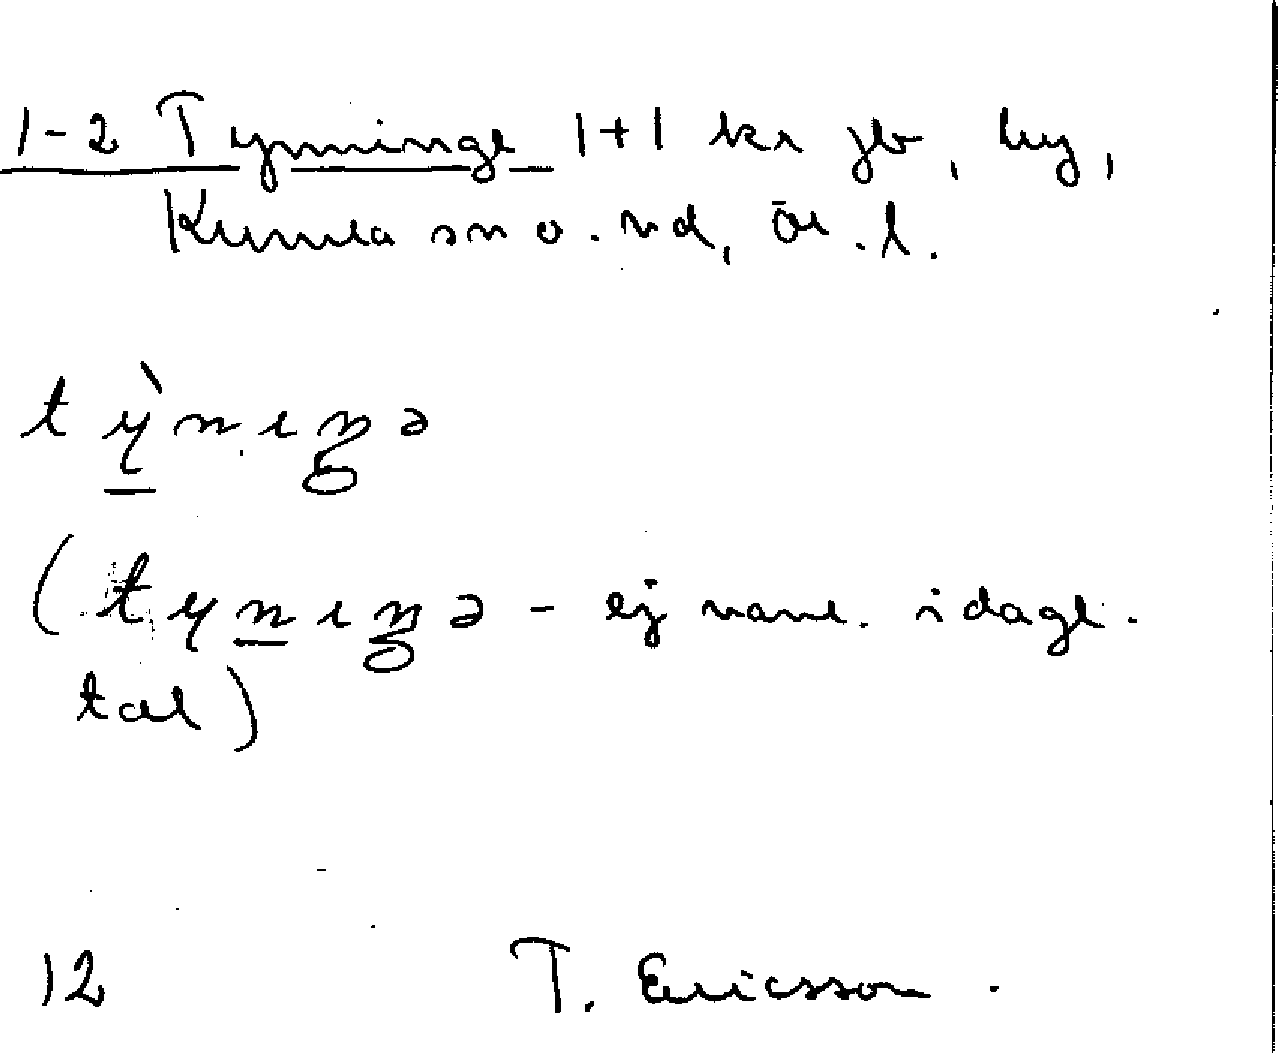 1-2 Tynninge 1+1 kr jb, by,
Kumla sn o. hd, Ör. l.
tỳ̱nıŋə
(tyn̠ıŋə - ej vanl. i dagl.
tal)
12 T. Ericsson.